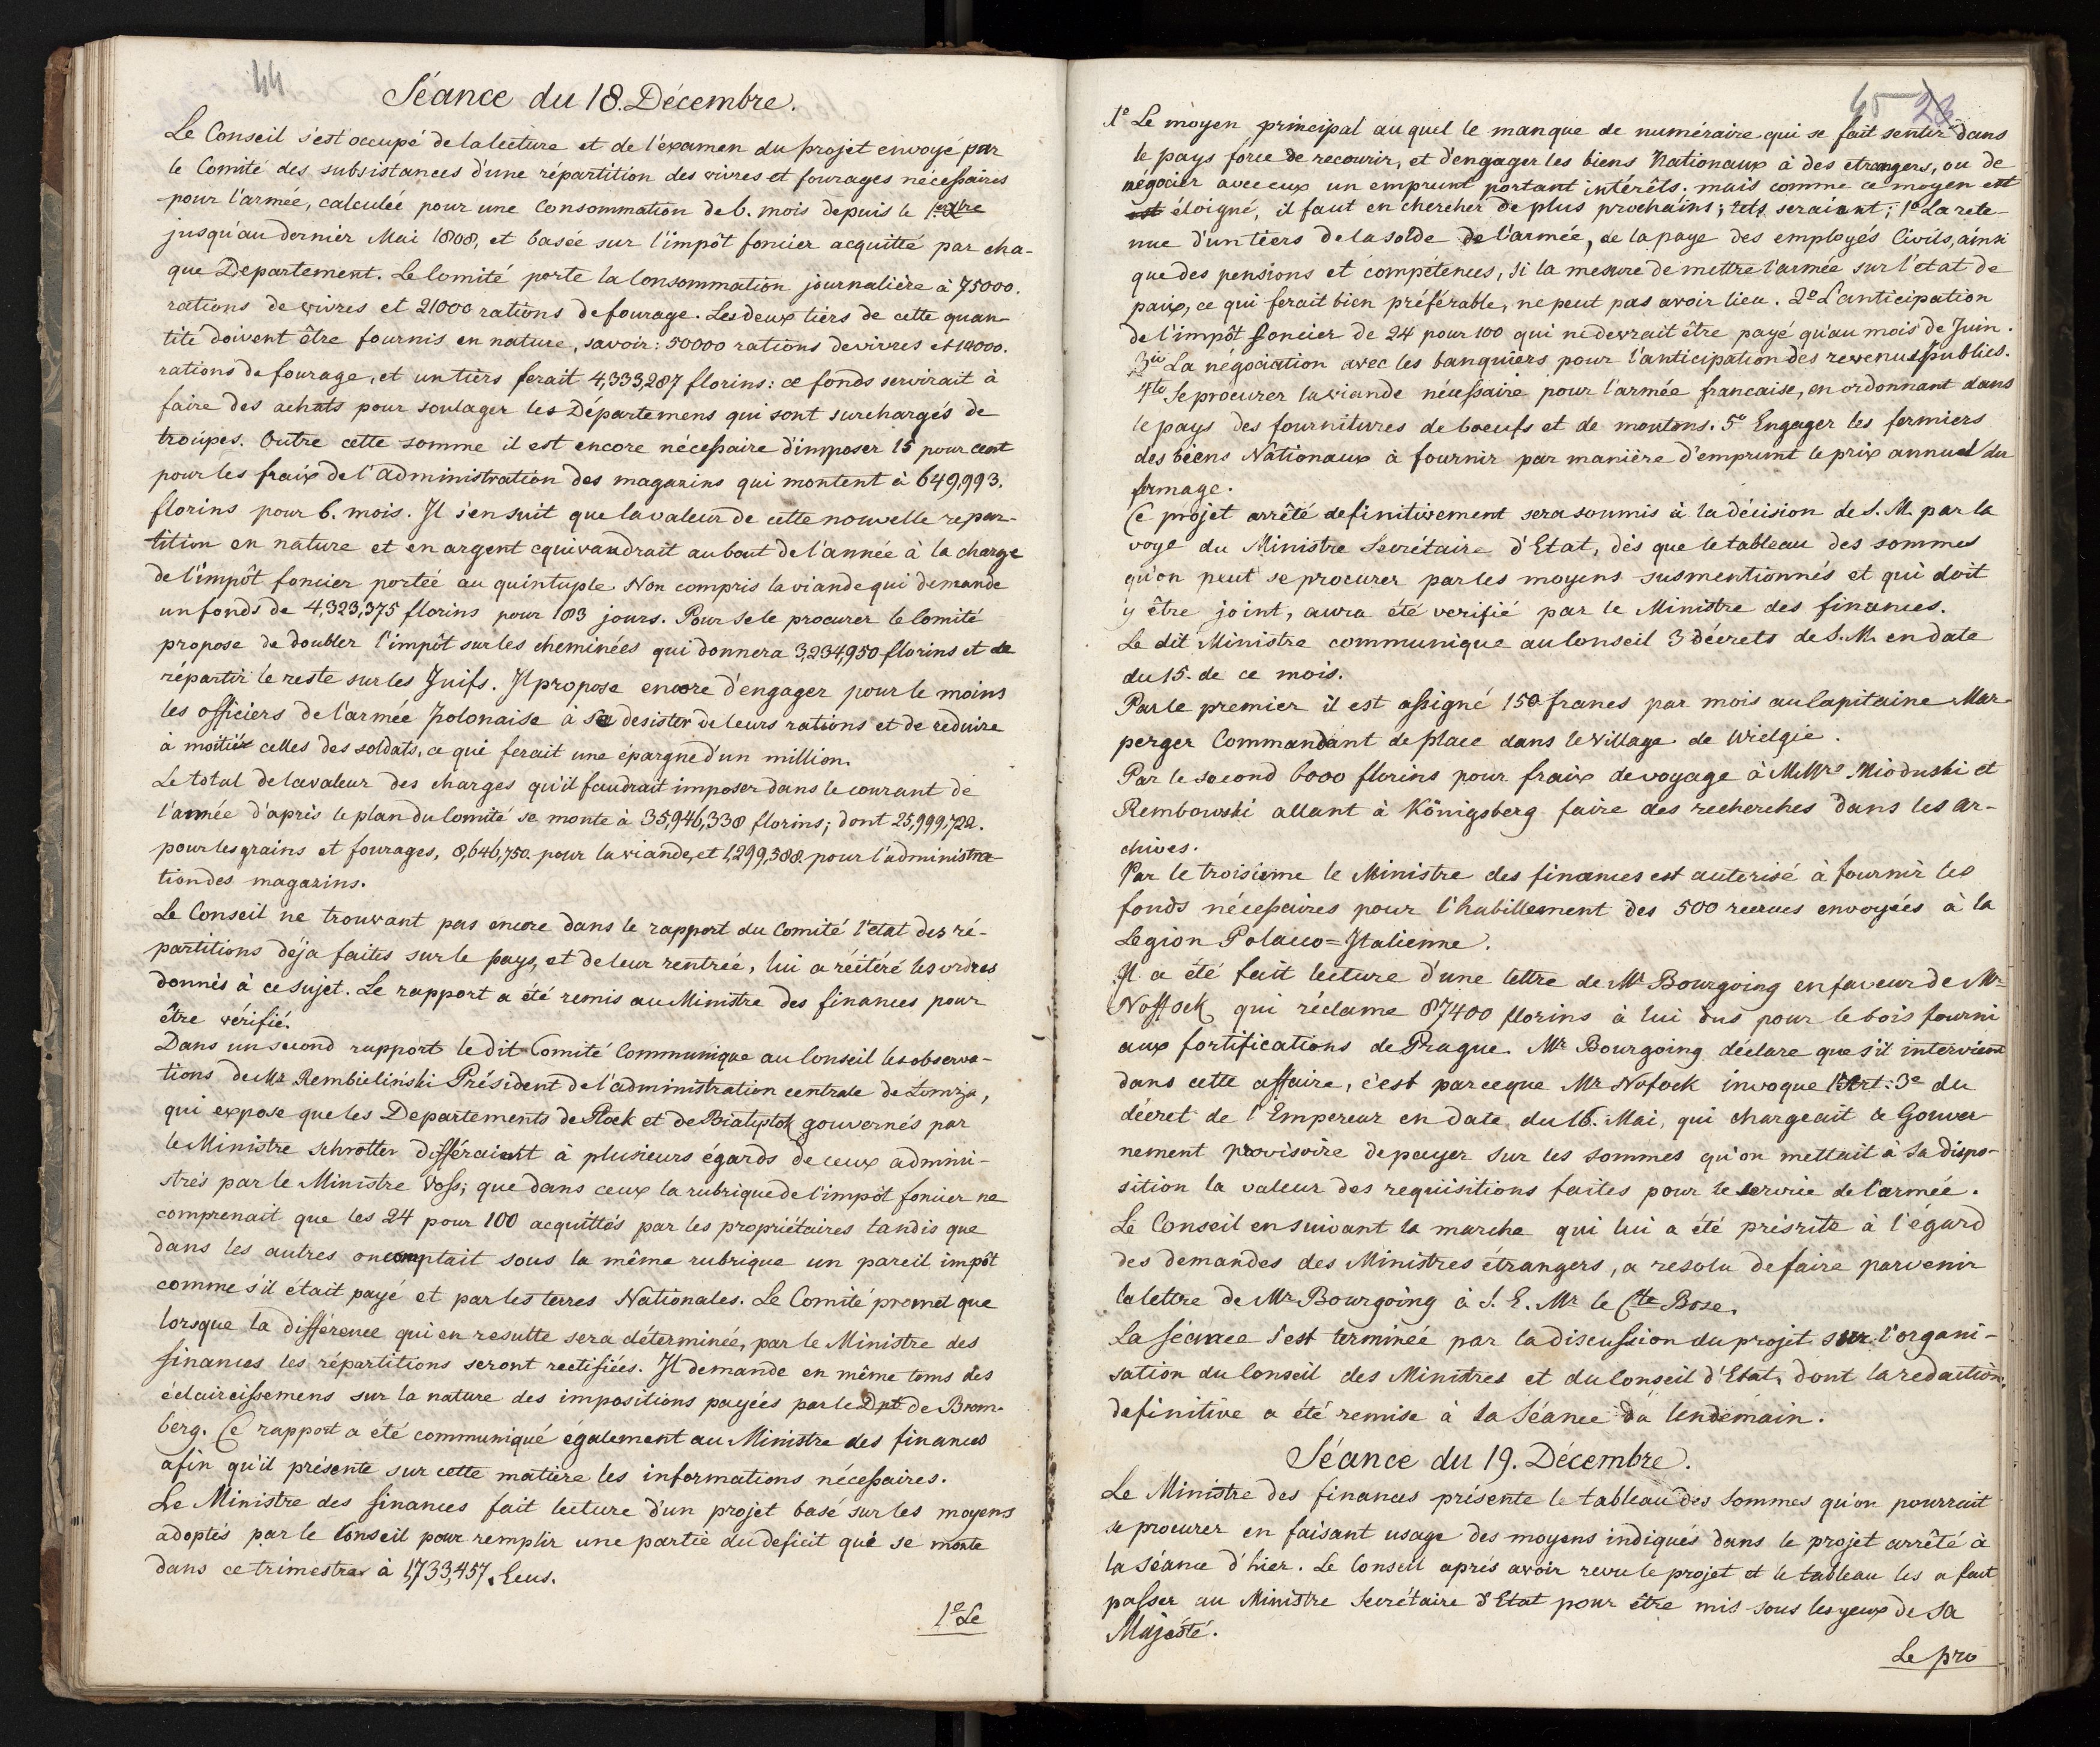 44
Séance du 18. Décembre.
Le Conseil s'est occupé de la lecture et de l'examen du projet envoyé par
le Comité des subsistances d'une répartition des vivres et fourages nécessaires
pour l'armée, calculée pour une Consommation de 6. mois depuis le 1er Xbre
jusqu'au dernier Mai 1808, et basée sur l'impôt foncier acquitté par cha-
que Departement. Le Comité porte la Consommation journalière à 75000.
rations de vivres et 21000 rations de fourage. Les deux tiers de cette quan-
tité doivent être fournis en nature, savoir: 50000 rations de vivres et 14000.
rations de fourage, et un tiers ferait 4,333,287 florins: ce fonds servirait à
faire des achats pour soulager les Départemens qui sont surchargés de
troupes. Outre cette somme il est encore nécessaire d'imposer 15 pour cent
pour les fraix de l'administration des magazins qui montent à 649,993.
florins pour 6. mois. Il s'en suit que la valeur de cette nouvelle repar-
tition en nature et en argent equivaudrait au bout de l'année à la charge
de l'impôt foncier portée au quintuple. Non compris la viande qui demande
un fonds de 4,323,375 florins pour 183 jours. Pour se le procurer le Comité
propose de doubler l'impôt sur les cheminées qui donnera 3,234,950 florins et de
répartir le reste sur les Juifs. Il propose encore d'engager pour le moins
les officiers de l'armée polonaise à se desister de leurs rations et de reduire
à moitié celles des soldats, ce qui ferait une épargne d'un million.
Le total de la valeur des charges qu'il faudrait imposer dans le courant de
l'année d'après le plan du Comité se monte à 35,946,338 florins; dont 25,999,722.
pour les grains et fourages, 8,646,750. pour la viande, et 1,299,588. pour l'administra-
tion des magazins.
Le Conseil ne trouvant pas encore dans le rapport du Comité l'état des ré-
partitions déja faites sur le pays, et de leur rentrée, lui a réitéré les ordres
donnés à ce sujet. Le rapport a été remis au Ministre des finances pour
être vérifié.
Dans un second rapport le dit Comité Communique au Conseil les observa-
tions de Mr Rembieliński Président de l'administration centrale de Lomza,
qui expose que les Departements de Plock et de Bialystok gouvernés par
le Ministre Schrötter différaient à plusieurs égards de ceux admini-
strés par le Ministre Voss; que dans ceux la rubrique de l'impôt foncier ne
comprenait que les 24 pour 100 acquittés par les propriétaires tandis que
dans les autres on comptait sous la même rubrique un pareil impôt
comme s'il était payé et par les terres Nationales. Le Comité promet que
lorsque la différence qui en resulte sera déterminée, par le Ministre des
finances les répartitions seront rectifiées. Il demande en même tems des
éclaircissemens sur la nature des impositions payées par le Dpt de Brom-
berg. Ce rapport a été communiqué également au Ministre des finances
afin qu'il présente sur cette matière les informations nécessaires.
Le Ministre des finances fait lecture d'un projet basé sur les moyens
adoptés par le Conseil pour remplir une partie du deficit qui se monte
dans ce trimestre à 1,733,457. Ecus.
1° Le
45 23
1° Le moyen principal au quel le manque de numéraire qui se fait sentir dans
le pays force de recourir, et d'engager les biens Nationaux à des etrangers, ou de
négocier avec eux un emprunt portant intérêts; mais comme ce moyen est
est éloigné, il faut en chercher de plus prochains; tels seraient; 1° La rete-
nue d'un tiers de la solde de l'armée, de la paye des employés Civils, ainsi
que des pensions et compétences, si la mesure de mettre l'armée sur l'etat de
paix, ce qui ferait bien préférable, ne peut pas avoir lieu. 2° L'anticipation
de l'impôt foncier de 24 pour 100 qui ne devrait être payé qu'au mois de Juin.
3tio La négociation avec les banquiers pour l'anticipation des revenus publics.
4to Se procurer la viande nécessaire pour l'armée francaise, en ordonnant dans
le pays des fournitures de boeufs et de moutons. 5° Engager les fermiers
des biens Nationaux à fournir par manière d'emprunt le prix annuel du
fermage.
Ce projet arrêté definitivement sera soumis à la décision de S. M. par la
voye du Ministre Secrétaire d'Etat, dès que le tableau des sommes
qu'on peut se procurer par les moyens susmentionnés et qui doit
y être joint, aura été verifié par le Ministre des finances.
Le dit Ministre communique au Conseil 3 décrets de S. M. en date
du 15. de ce mois.
Par le premier il est assigné 150 francs par mois au Capitaine Mar-
perger Commandant de place dans le Village de Wielgie.
Par le second 6000 florins pour fraix de voyage à M.Mrs Mioduski et
Rembowski allant à Königsberg faire des recherches dans les ar-
chives.
Par le troisieme le Ministre des finances est autorisé à fournir les
fonds nécessaires pour l'habillement des 500 recrues envoyées à la
Legion Polacco=Italienne.
Il a été fait lecture d'une lettre de Mr Bourgoing en faveur de Mr
Noffock qui réclame 87400 florins à lui dus pour le bois fourni
aux fortifications de Prague. Mr Bourgoing déclare que s'il intervient
dans cette affaire, c'est parceque Mr Nofock invoque l'Art: 3e du
décret de l'Empereur en date du 16. Mai, qui chargeait le Gouver-
nement provisoire de payer sur les sommes qu'on mettait à sa dispo-
sition la valeur des requisitions faites pour le service de l'armée.
Le Conseil en suivant la marche qui lui a été préscrite à l'égard
des demandes des Ministres étrangers, a resolu de faire parvenir
la lettre de Mr Bourgoing à S. E. Mr le Cte Bose.
La séance s'est terminée par la discussion du projet sur l'organi-
sation du Conseil des Ministres et du Conseil d'Etat, dont la redaction
definitive a été remise à la Séance du lendemain.
Séance du 19. Décembre.
Le Ministre des finances présente le tableau des sommes qu'on pourrait
se procurer en faisant usage des moyens indiqués dans le projet arrêté à
la séance d'hier. Le Conseil après avoir revu le projet et le tableau les a fait
passer au Ministre Secrétaire d'Etat pour être mis sous les yeux de Sa
Majésté.
Le pro